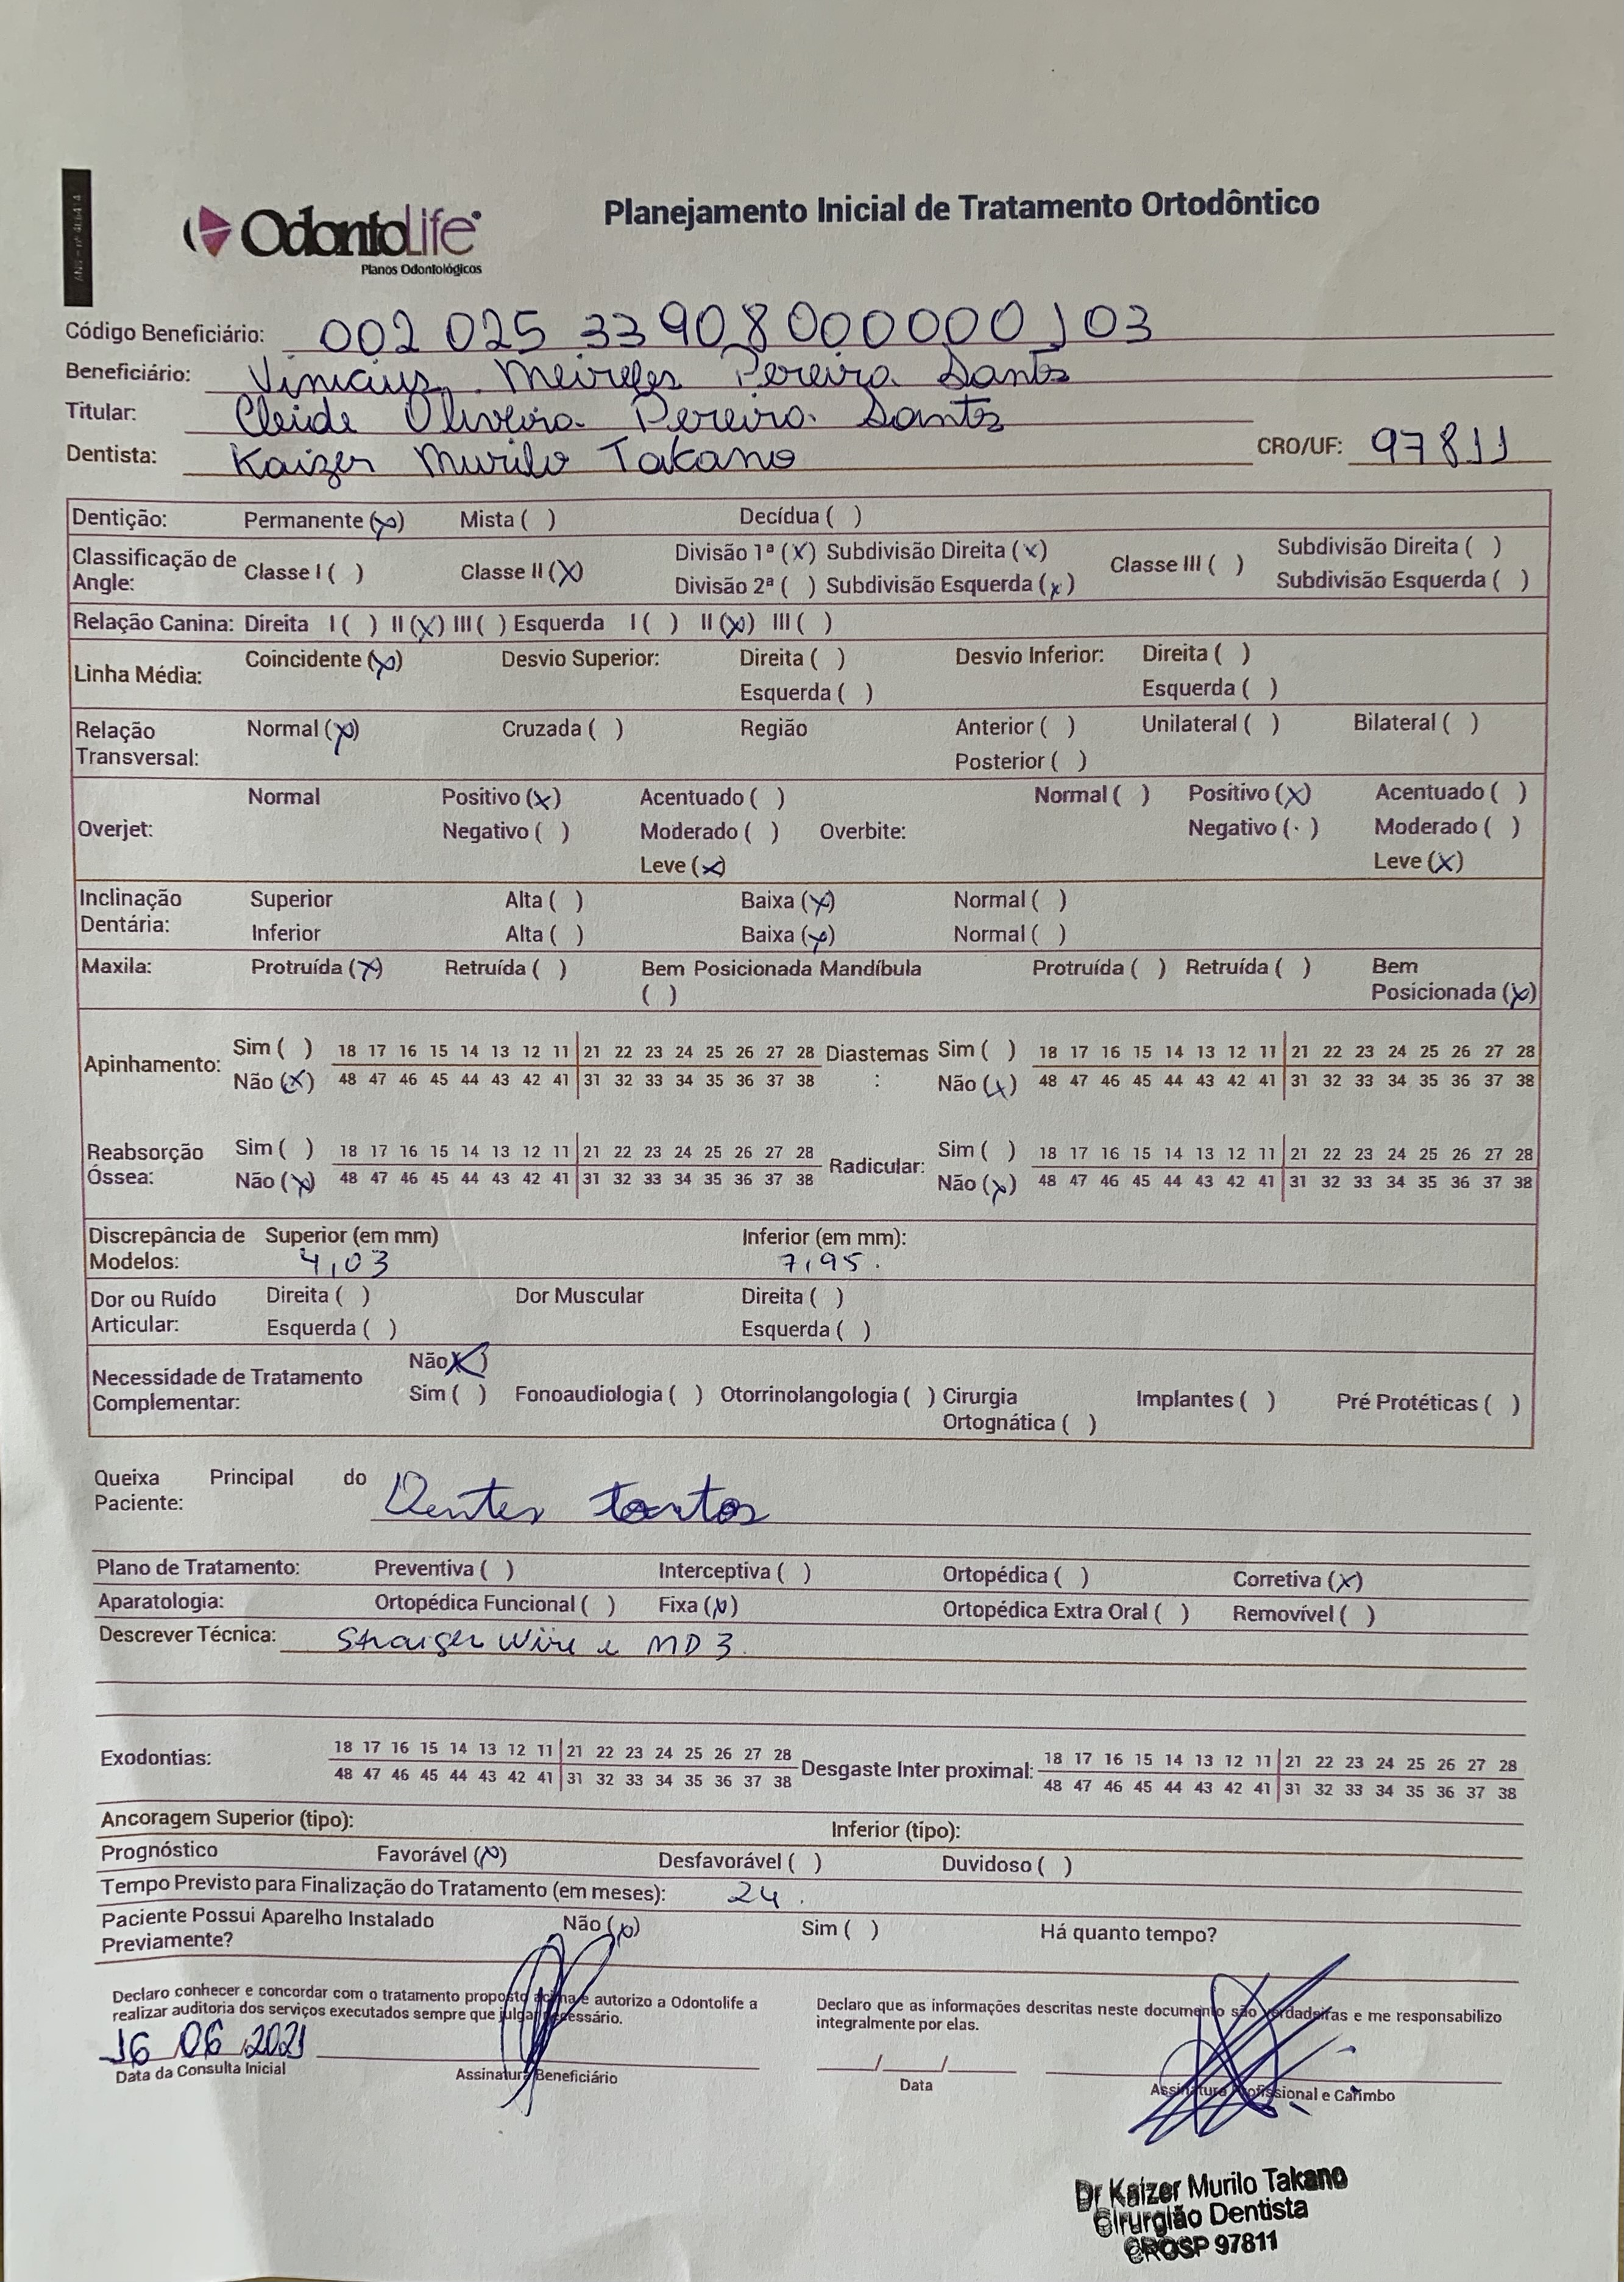 OdontoLife
Planos Odontológicos
Planejamento Inicial de Tratamento Ortodôntico
Código Beneficiário: 002 025 33908000000103
Beneficiário: Vinicius Meireles Pereira Santos
Titular: Cleide Oliveira Pereira Santos
Dentista: Kaizer Murilo Takano CRO/UF: 97811
Dentição: Permanente (x) Mista ( ) Decídua ( )
Classificação de Angle: Classe I ( ) Classe II (x) Divisão 1ª (x) Subdivisão Direita (x) Classe III ( ) Subdivisão Direita ( )
Divisão 2ª ( ) Subdivisão Esquerda (x) Subdivisão Esquerda ( )
Relação Canina: Direita I ( ) II (x) III ( ) Esquerda I ( ) II (x) III ( )
Linha Média: Coincidente (x) Desvio Superior: Direita ( ) Desvio Inferior: Direita ( )
Esquerda ( ) Esquerda ( )
Relação Transversal: Normal (x) Cruzada ( ) Região Anterior ( ) Unilateral ( ) Bilateral ( )
Posterior ( )
Overjet: Normal Positivo (x) Acentuado ( ) Overbite: Normal ( ) Positivo (x) Acentuado ( )
Negativo ( ) Moderado ( ) Negativo ( ) Moderado ( )
Leve (x) Leve (x)
Inclinação Dentária: Superior Alta ( ) Baixa (x) Normal ( )
Inferior Alta ( ) Baixa (x) Normal ( )
Maxila: Protruída (x) Retruída ( ) Bem Posicionada ( ) Mandíbula Protruída ( ) Retruída ( ) Bem Posicionada (x)
Apinhamento: Sim ( ) 18 17 16 15 14 13 12 11 21 22 23 24 25 26 27 28 Diastemas: Sim ( ) 18 17 16 15 14 13 12 11 21 22 23 24 25 26 27 28
Não (x) 48 47 46 45 44 43 42 41 31 32 33 34 35 36 37 38 Não (x) 48 47 46 45 44 43 42 41 31 32 33 34 35 36 37 38
Reabsorção Óssea: Sim ( ) 18 17 16 15 14 13 12 11 21 22 23 24 25 26 27 28 Radicular: Sim ( ) 18 17 16 15 14 13 12 11 21 22 23 24 25 26 27 28
Não (x) 48 47 46 45 44 43 42 41 31 32 33 34 35 36 37 38 Não (x) 48 47 46 45 44 43 42 41 31 32 33 34 35 36 37 38
Discrepância de Modelos: Superior (em mm) 4,03 Inferior (em mm): 7,95.
Dor ou Ruído Articular: Direita ( ) Dor Muscular Direita ( )
Esquerda ( ) Esquerda ( )
Necessidade de Tratamento Complementar: Não (x)
Sim ( ) Fonoaudiologia ( ) Otorrinolangologia ( ) Cirurgia Ortognática ( ) Implantes ( ) Pré Protéticas ( )
Queixa Principal do Paciente: Dentes tortos
Plano de Tratamento: Preventiva ( ) Interceptiva ( ) Ortopédica ( ) Corretiva (x)
Aparatologia: Ortopédica Funcional ( ) Fixa (x) Ortopédica Extra Oral ( ) Removível ( )
Descrever Técnica: Straiger Wire e MD3.
Exodontias: 18 17 16 15 14 13 12 11 21 22 23 24 25 26 27 28 Desgaste Inter proximal: 18 17 16 15 14 13 12 11 21 22 23 24 25 26 27 28
48 47 46 45 44 43 42 41 31 32 33 34 35 36 37 38 48 47 46 45 44 43 42 41 31 32 33 34 35 36 37 38
Ancoragem Superior (tipo): Inferior (tipo):
Prognóstico Favorável (x) Desfavorável ( ) Duvidoso ( )
Tempo Previsto para Finalização do Tratamento (em meses): 24.
Paciente Possui Aparelho Instalado Previamente? Não (x) Sim ( ) Há quanto tempo?
Declaro conhecer e concordar com o tratamento proposto acima e autorizo a Odontolife a
realizar auditoria dos serviços executados sempre que julgar necessário.
Declaro que as informações descritas neste documento são verdadeiras e me responsabilizo
integralmente por elas.
16 06 2021
Data da Consulta Inicial Assinatura Beneficiário
Data Assinatura Profissional e Carimbo
Dr Kaizer Murilo Takano
Cirurgião Dentista
CROSP 97811